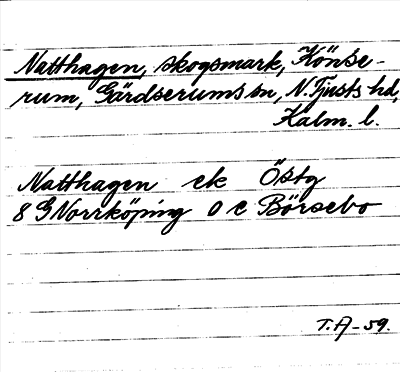 Natthagen, skogsmark, Könse-
rum, Gärdserums sn, N. Tjusts hd,
Kalm. l.
Natthagen ek Östg
8 G Norrköping 0 c Börsebo
T.A-59.